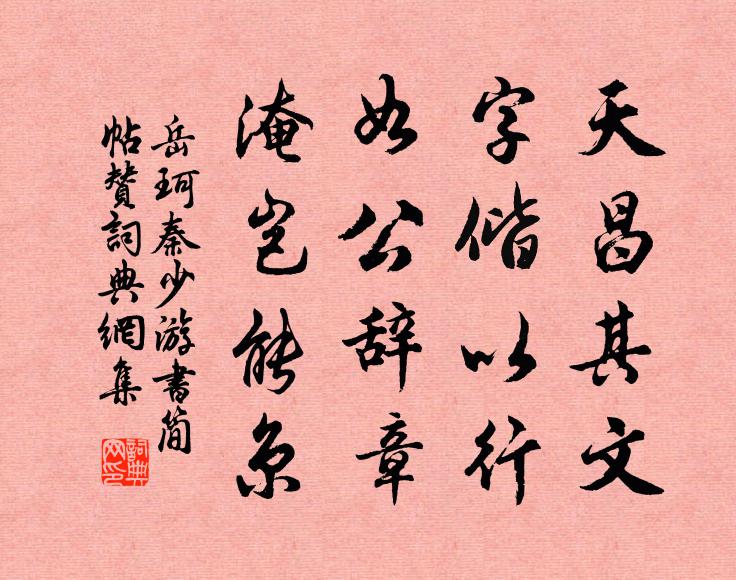 天昌其文
字偕以行
如公辞章
淹岂能京
岳珂秦少游书简
帖赞詞典網集
詞典网印